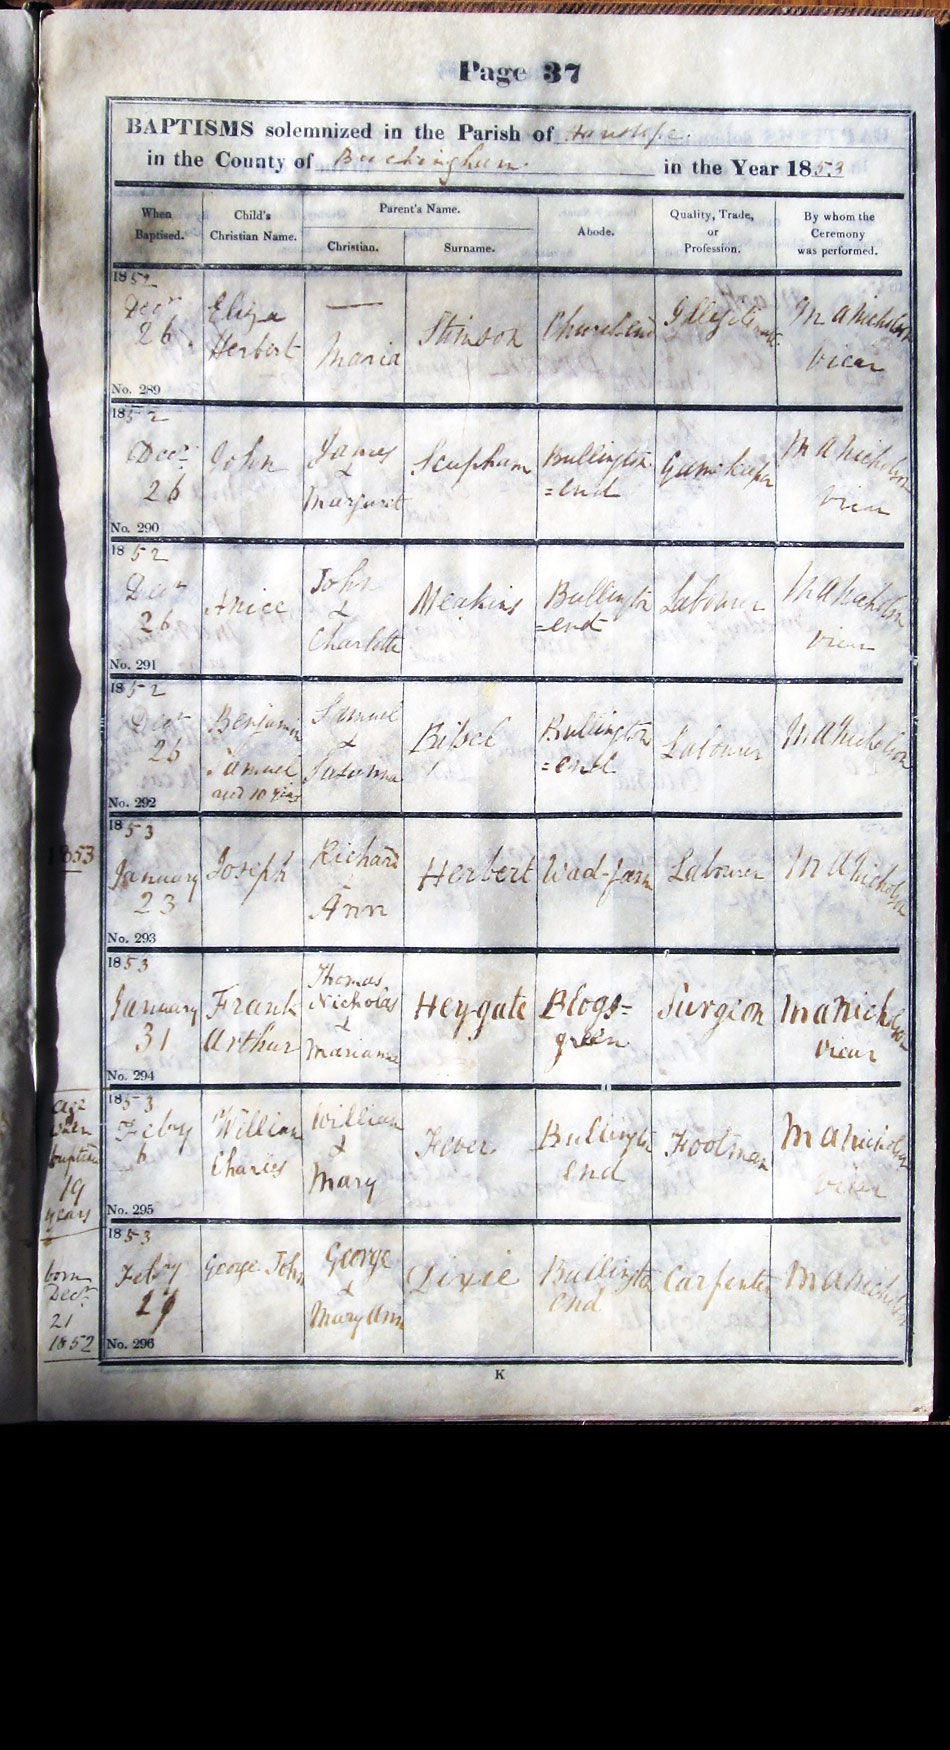 Page 37
BAPTISMS solemnized in the Parish of Hanslope
in the County of Buckingham in the Year 1853
When Baptised.
Child's Christian Name.
Parent's Name.
Christian.
Surname.
Abode.
Quality, Trade, or Profession.
By whom the Ceremony was performed.
1852
Decr
26
Eliza
Herbert
—
Maria
Stimson
Church end
Illegitimate
M A Nicholson
Vicar
No. 289
1852
Decr
26
John
James
&
Margaret
Scupham
Bullington
=end
Game keeper
M A Nicholson
Vicar
No. 290
1852
Decr
26
Anice
John
&
Charlotte
Meakins
Bullington
=end
Labourer
M A Nicholson
Vicar
No. 291
1852
Decr
Benjamin
Samuel
aged 10 years
Samuel
&
Susanna
Bullington
=end
Labourer
M A Nicholson
No. 292
1853
1853
January
23
Joseph
Richard
Ann
Herbert
Labourer
M A Nicholson
No. 293
1853
January
31
Frank
Arthur
Thomas
Nicholas
&
Marianne
Heygate
Blogs=
green
Surgeon
M A Nicholson
Vicar
No. 294
age
when
baptised
19
years
1853
Feby
6
William
Charles
William
&
Mary
Bullington
end
Footman
M A Nicholson
Vicar
No. 295
born
Decr
21
1852
1853
Feby
George John
George
&
Mary Ann
Dixie
Bullington
end
Carpenter
M A Nicholson
No. 296
K